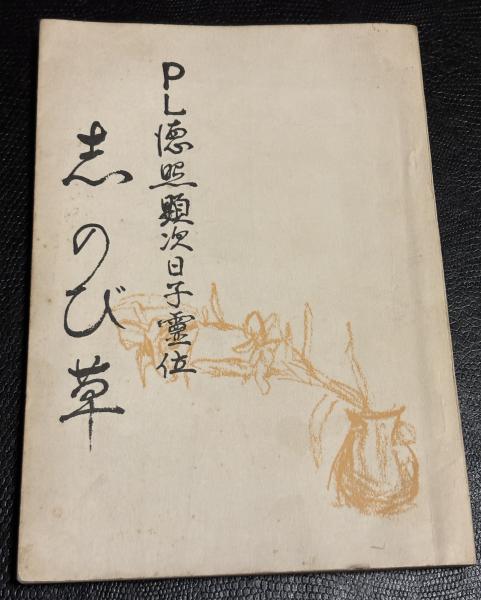 PL徳照顕次日子霊位
志のび草